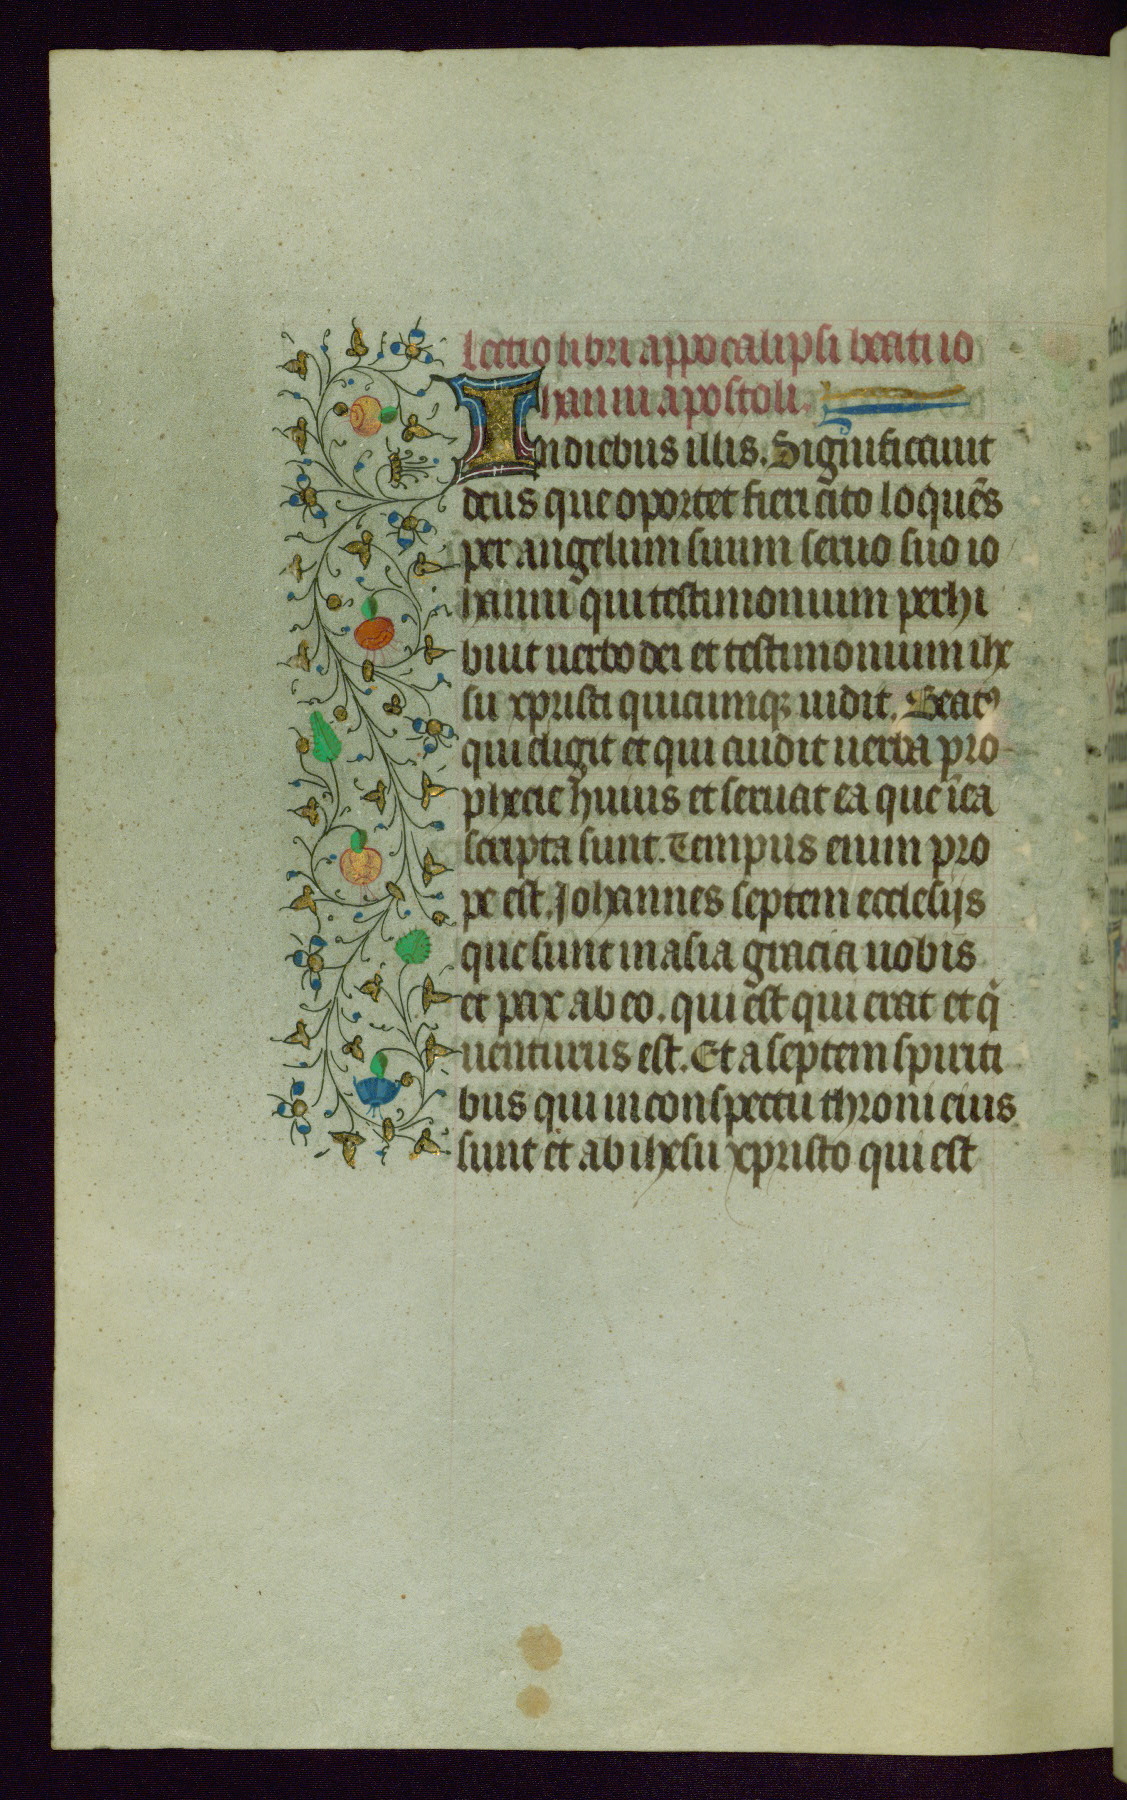 lectio libri appocalipsi beati io
hanni apostoli.
In diebus illis. Significauit
deus que oportet fieri cito loquẽs
per angelum suum seruo suo io
hanni qui testimonium perhi
buit uerbo dei et testimonium ihe
su xpristi quicumqꝫ uidit. Beatꝰ
qui eligit et qui audit uerba pro
phecie huius et seruat ea que ĩ ea
scripta sunt. Tempus enim pro
pe est. Johannes septem ecclesijs
que sunt in asia gracia uobis
et pax ab eo. qui est qui erat et qͥ
uenturus est. Et a septem spiriti
bus qui in conspectu throni eius
sunt et ab ihesu xpristo qui est